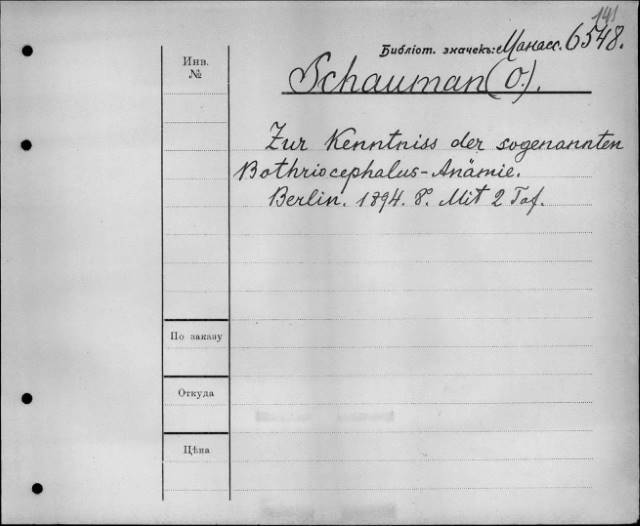 141
Библіот. значекъ: Манасс. 6548.
Инв. №
Schauman (O.).
Zur Kenntniss der sogenannten
Bothriocephalus-Anämie.
Berlin. 1894. 8º. Mit 2 Taf.
По заказу
Откуда
Цѣна